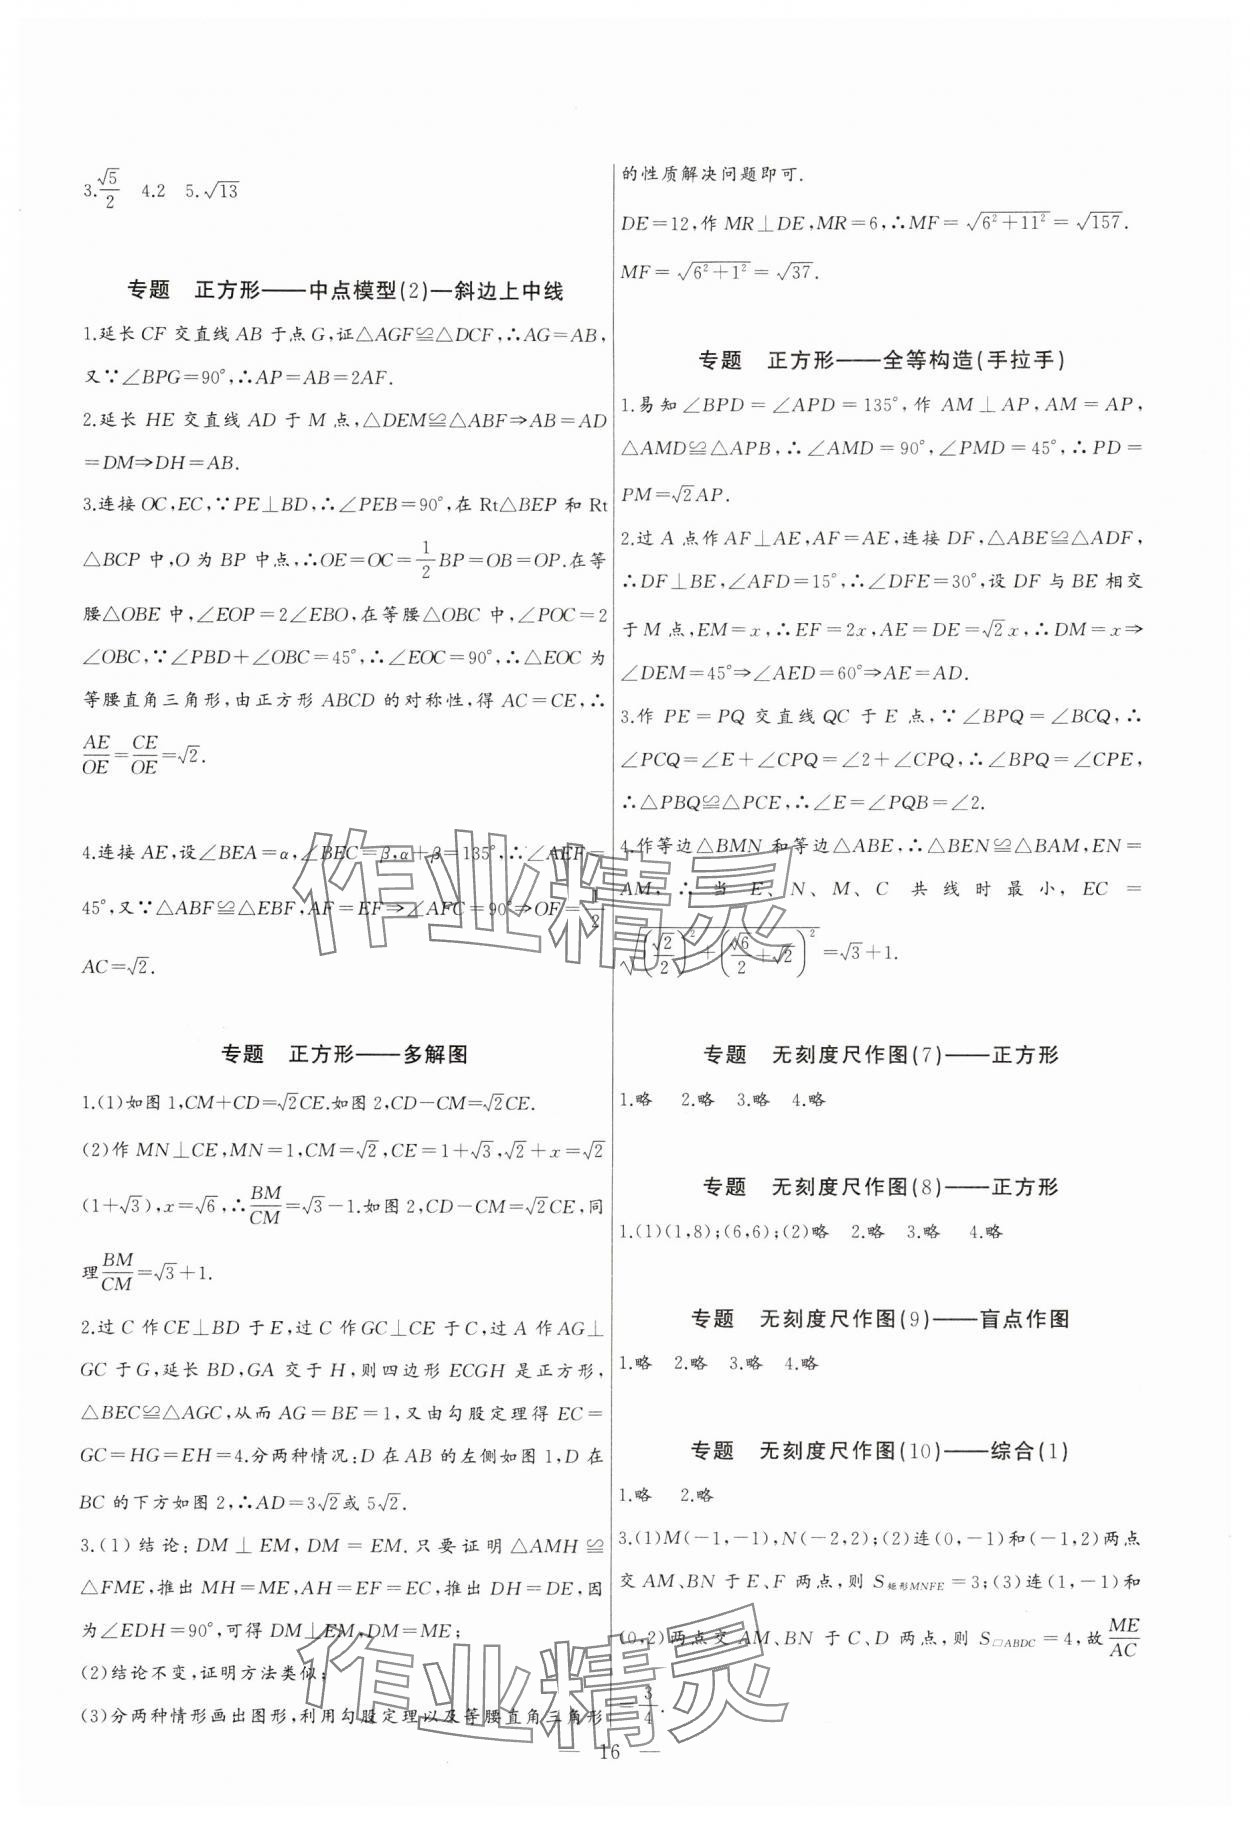 3.√5/2 4.2 5.√13
专题 正方形——中点模型(2)—斜边上中线
1.延长 CF 交直线 AB 于点 G,证△AGF≌△DCF,∴AG=AB,
又∵∠BPG=90°,∴AP=AB=2AF.
2.延长 HE 交直线 AD 于 M 点,△DEM≌△ABF⇒AB=AD
=DM⇒DH=AB.
3.连接 OC,EC,∵PE⊥BD,∴∠PEB=90°,在 Rt△BEP 和 Rt
△BCP 中,O 为 BP 中点,∴OE=OC=1/2BP=OB=OP.在等
腰△OBE 中,∠EOP=2∠EBO,在等腰△OBC 中,∠POC=2
∠OBC,∵∠PBD+∠OBC=45°,∴∠EOC=90°,∴△EOC 为
等腰直角三角形,由正方形 ABCD 的对称性,得 AC=CE,∴
AE/OE=CE/OE=√2.
4.连接 AE,设∠BEA=α,∠BEC=β,α+β=135°,∴∠AEF=
45°,又∵△ABF≌△EBF,AF=EF⇒∠AFC=90°⇒OF=1/2
AC=√2.
专题 正方形——多解图
1.(1)如图 1,CM+CD=√2CE.如图 2,CD-CM=√2CE.
(2)作 MN⊥CE,MN=1,CM=√2,CE=1+√3,√2+x=√2
(1+√3),x=√6,∴BM/CM=√3-1.如图 2,CD-CM=√2CE,同
理BM/CM=√3+1.
2.过 C 作 CE⊥BD 于 E,过 C 作 GC⊥CE 于 C,过 A 作 AG⊥
GC 于 G,延长 BD,GA 交于 H,则四边形 ECGH 是正方形,
△BEC≌△AGC,从而 AG=BE=1,又由勾股定理得 EC=
GC=HG=EH=4.分两种情况:D 在 AB 的左侧如图 1,D 在
BC 的下方如图 2,∴AD=3√2或 5√2.
3.(1)结论:DM⊥EM,DM=EM.只要证明△AMH≌
△FME,推出 MH=ME,AH=EF=EC,推出 DH=DE,因
为∠EDH=90°,可得 DM⊥EM,DM=ME;
(2)结论不变,证明方法类似;
(3)分两种情形画出图形,利用勾股定理以及等腰直角三角形
的性质解决问题即可.
DE=12,作 MR⊥DE,MR=6,∴MF=√(6²+11²)=√157.
MF=√(6²+1²)=√37.
专题 正方形——全等构造(手拉手)
1.易知∠BPD=∠APD=135°,作 AM⊥AP,AM=AP,
△AMD≌△APB,∴∠AMD=90°,∠PMD=45°,∴PD=
PM=√2AP.
2.过 A 点作 AF⊥AE,AF=AE,连接 DF,△ABE≌△ADF,
∴DF⊥BE,∠AFD=15°,∴∠DFE=30°,设 DF 与 BE 相交
于 M 点,EM=x,∴EF=2x,AE=DE=√2x,∴DM=x⇒
∠DEM=45°⇒∠AED=60°⇒AE=AD.
3.作 PE=PQ 交直线 QC 于 E 点,∵∠BPQ=∠BCQ,∴
∠PCQ=∠E+∠CPQ=∠2+∠CPQ,∴∠BPQ=∠CPE,
∴△PBQ≌△PCE,∴∠E=∠PQB=∠2.
4.作等边△BMN 和等边△ABE,∴△BEN≌△BAM,EN=
AM,∴当 E、N、M、C 共线时最小,EC=
√((√2/2)²+(√6/2+√2)²)=√3+1.
专题 无刻度尺作图(7)——正方形
1.略 2.略 3.略 4.略
专题 无刻度尺作图(8)——正方形
1.(1)(1,8);(6,6);(2)略 2.略 3.略 4.略
专题 无刻度尺作图(9)——盲点作图
1.略 2.略 3.略 4.略
专题 无刻度尺作图(10)——综合(1)
1.略 2.略
3.(1)M(-1,-1),N(-2,2);(2)连(0,-1)和(-1,2)两点
交 AM、BN 于 E、F 两点,则 S矩形MNFE=3;(3)连(1,-1)和
(0,2)两点交 AM、BN 于 C、D 两点,则 S▱ABDC=4,故ME/AC
=3/4.
— 16 —
作业精灵
作业精灵